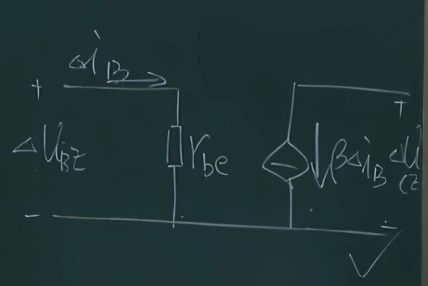 Δi_B
+ +
ΔU_BE r_be βΔi_B ΔU_CE
- -